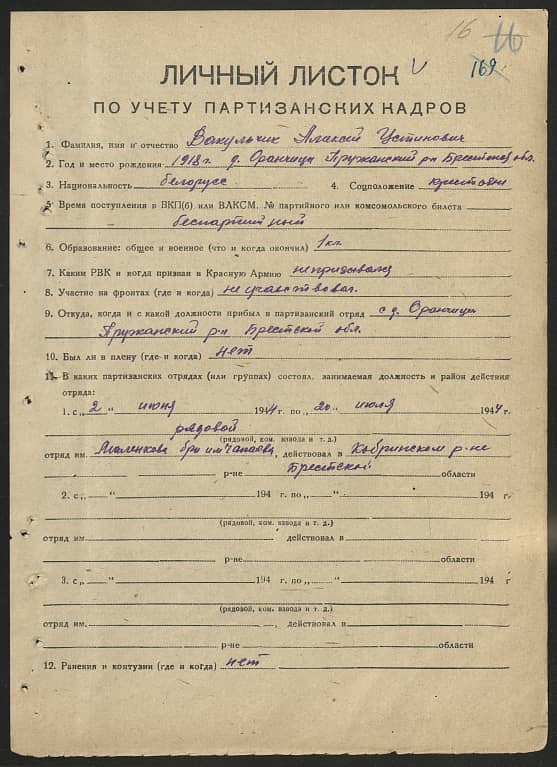 16 16
169
ЛИЧНЫЙ ЛИСТОК
ПО УЧЕТУ ПАРТИЗАНСКИХ КАДРОВ
1. Фамилия, имя и отчество Вакульчик Алексей Устинович
2. Год и место рождения 1918 г. д. Оранчицы Пружанский р-н Брестской обл.
3. Национальность белорусс 4. Соцположение крестьян
5. Время поступления в ВКП(б) или ВЛКСМ, № партийного или комсомольского билета
беспартийный
6. Образование: общее и военное (что и когда окончил) 1 кл.
7. Каким РВК и когда призван в Красную Армию не призывался
8. Участие на фронтах (где и когда) не участвовал.
9. Откуда, когда и с какой должности прибыл в партизанский отряд с д. Оранчицы
Пружанский р-н Брестской обл.
10. Был ли в плену (где и когда) нет
11. В каких партизанских отрядах (или группах) состоял, занимаемая должность и район действия
отряда:
1. с „2“ июня 1944 г. по „20“ июля 1944 г.
рядовой
(рядовой, ком. взвода и т. д.)
отряд им. Маленкова бри им Чапаева, действовал в Кобринском р-не
р-не Брестской области
2. с „ “ 194 г. по „ “ 194 г.
(рядовой, ком. взвода и т. д.)
отряд им. действовал в
р-не области
3. с „ “ 194 г. по „ “ 194 г
(рядовой, ком. взвода и т. д.)
отряд им. , действовал в
р-не области
12. Ранения и контузии (где и когда) нет